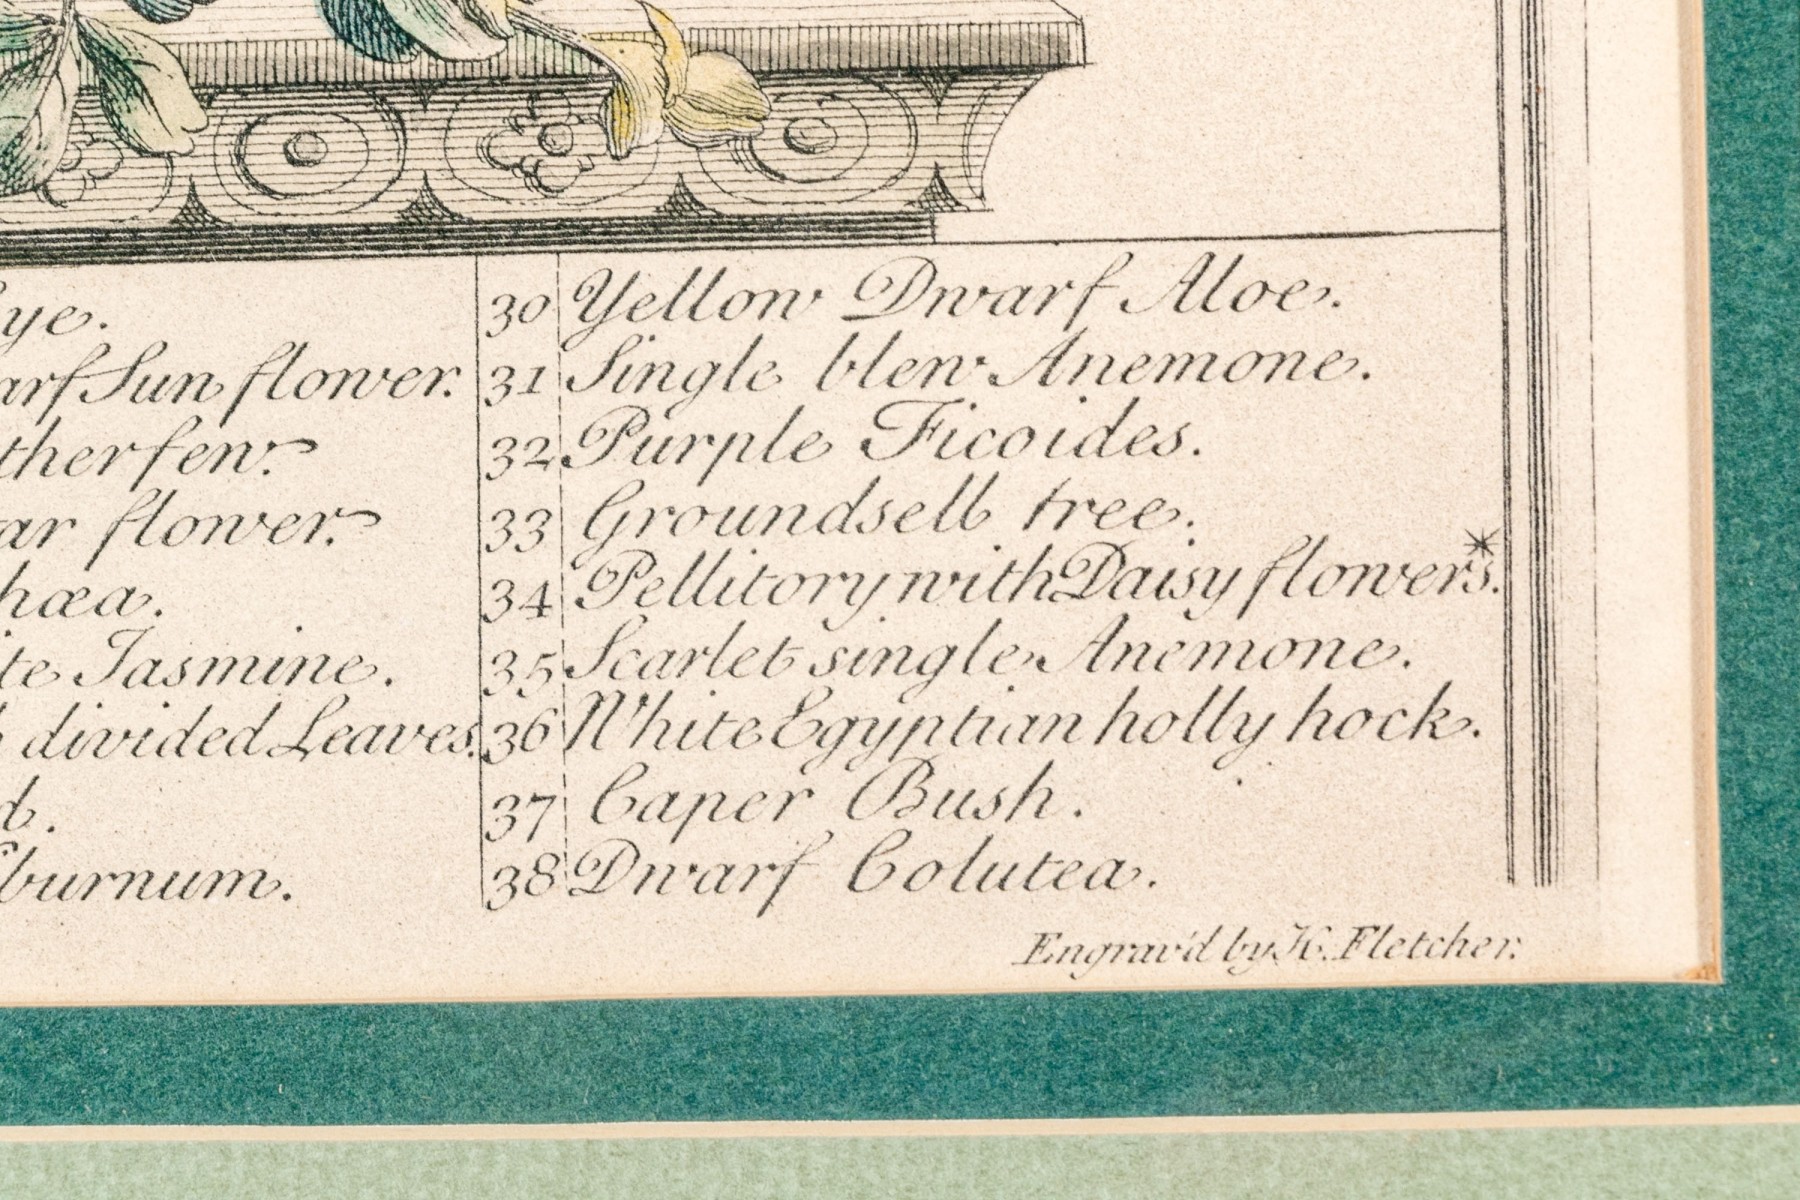 ye.
arf Sun flower.
therfew.
ar flower.
hæa.
te Jasmine.
divided Leaves.
d.
burnum.
30 Yellow Dwarf Aloe.
31 Single blew Anemone.
32 Purple Ficoides.
33 Groundsell tree.
34 Pellitory with Daisy flowers.*
35 Scarlet single Anemone.
36 White Egyptian holly hock.
37 Caper Bush.
38 Dwarf Colutea.
Engrav'd by H. Fletcher.